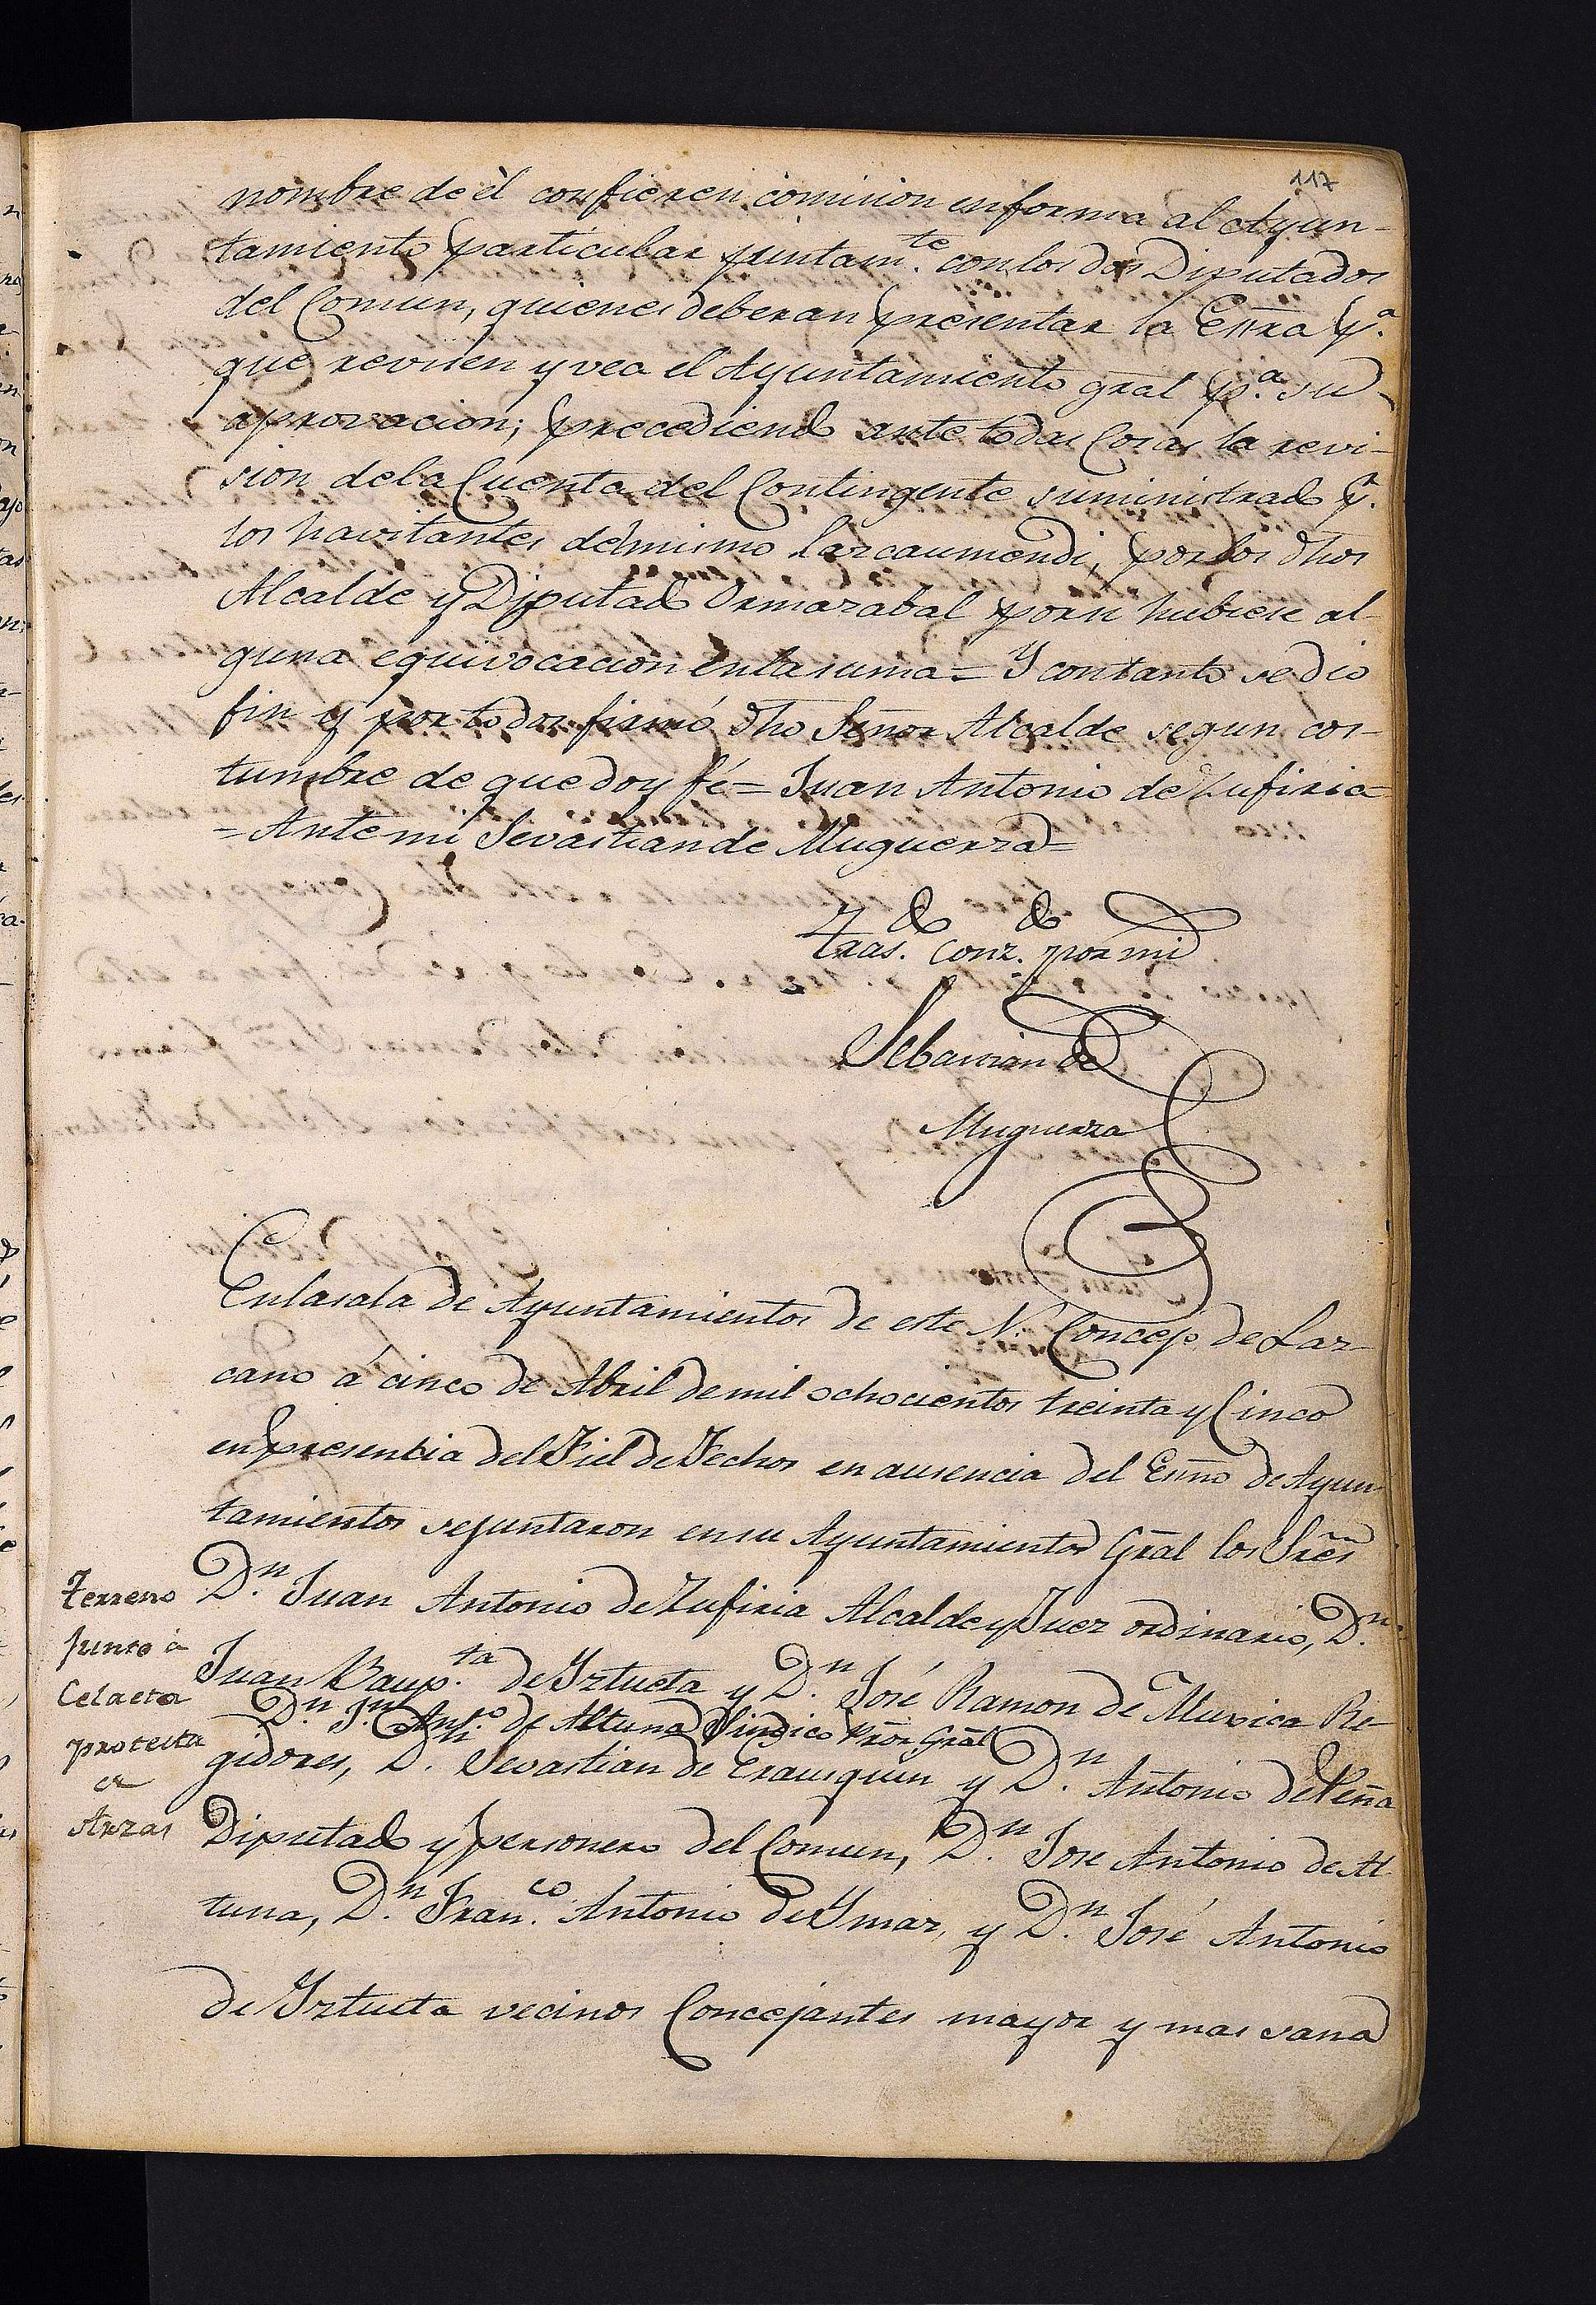 117
nombre de èl confieren comision en forma al Ayun-
tamiento particular juntam.te con los dos Diputados
del Comun, quienes deberan presentar la Essra p.a
que revisen y vea el Ayuntamiento gral p.a su
aprovacion; precediendo ante todas Cosas la revi-
sion de la Cuenta del Contingente suministrado p.r
los havitantes del mismo Larcaumendi, por los dhos
Alcalde y Diputado Ormazabal por si hubiese al-
guna equivocacion en la suma = Y con tanto se dio
fin y por todos firmó dho Señor Alcalde segun cos-
tumbre de que doy fé = Juan Antonio de Zufiria
= Ante mi Sevastian de Muguerza =
tras. conz. por mi
Sebastian de
Muguerza
En la sala de Ayuntamientos de este N. Concejo de Laz-
cano á cinco de Abril de mil ochocientos treinta y Cinco
en presencia del Fiel de Fechos en ausencia del Essno de Ayun-
tamientos se juntaron en su Ayuntamiento Gral los Sres
Terreno
junto à
Celaeta
protesta
a
Arzas
D.n Juan Antonio de Zufiria Alcalde y Juez ordinario, D.n
Juan Baup.ta de Iztueta y D.n José Ramon de Muxica Re-
D.n J.n Ant.o de Altuna Sindico Pror Gral
gidores, D.n Sevastian de Erausquin y D.n Antonio de Peña
Diputado y personero del Comun, D.n Jose Antonio de Al-
tuna, D.n Fran.co Antonio de Ymaz, y D.n José Antonio
de Iztueta vecinos Concejantes mayor y mas sana